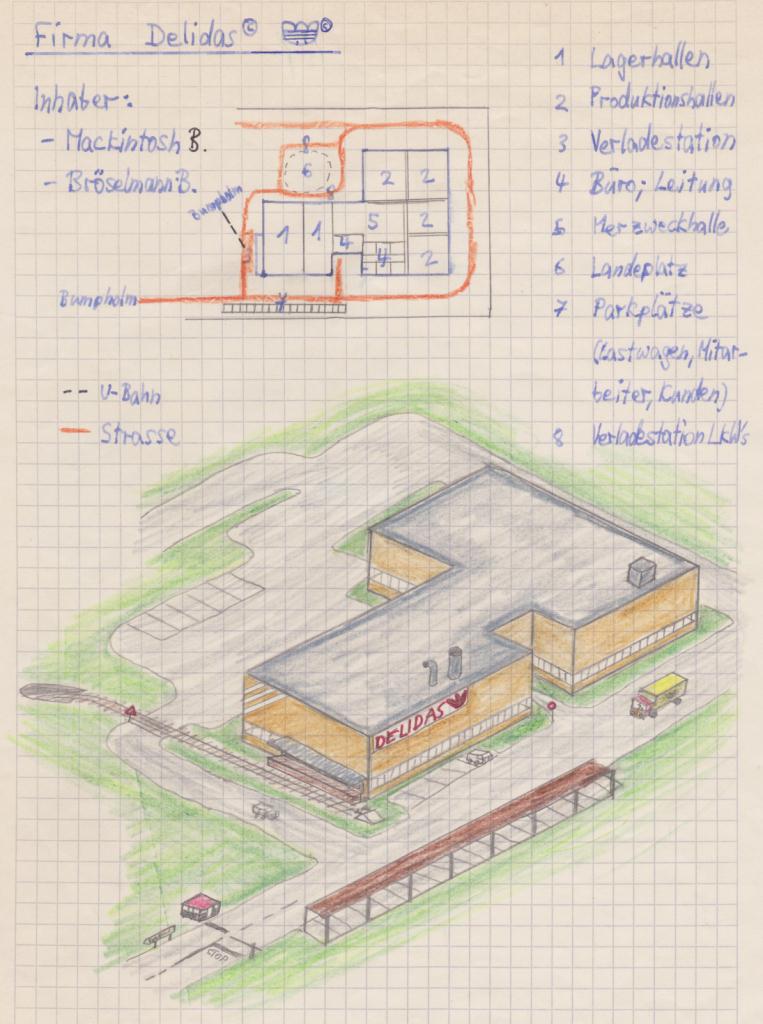 Firma Delidas © ©
Inhaber:
- Mackintosh B.
- Bröselmann B.
1 Lagerhallen
2 Produktionshallen
3 Verladestation
4 Büro; Leitung
5 Merzweckhalle
6 Landeplatz
7 Parkplätze
(Lastwagen, Mitar-
beiter, Kunden)
8 Verladestation LkWs
Bumpholm
8
6
2 2
1 1 5 2
4 4 2
Bumpholm
7
-- U-Bahn
— Strasse
DELIDAS
STOP